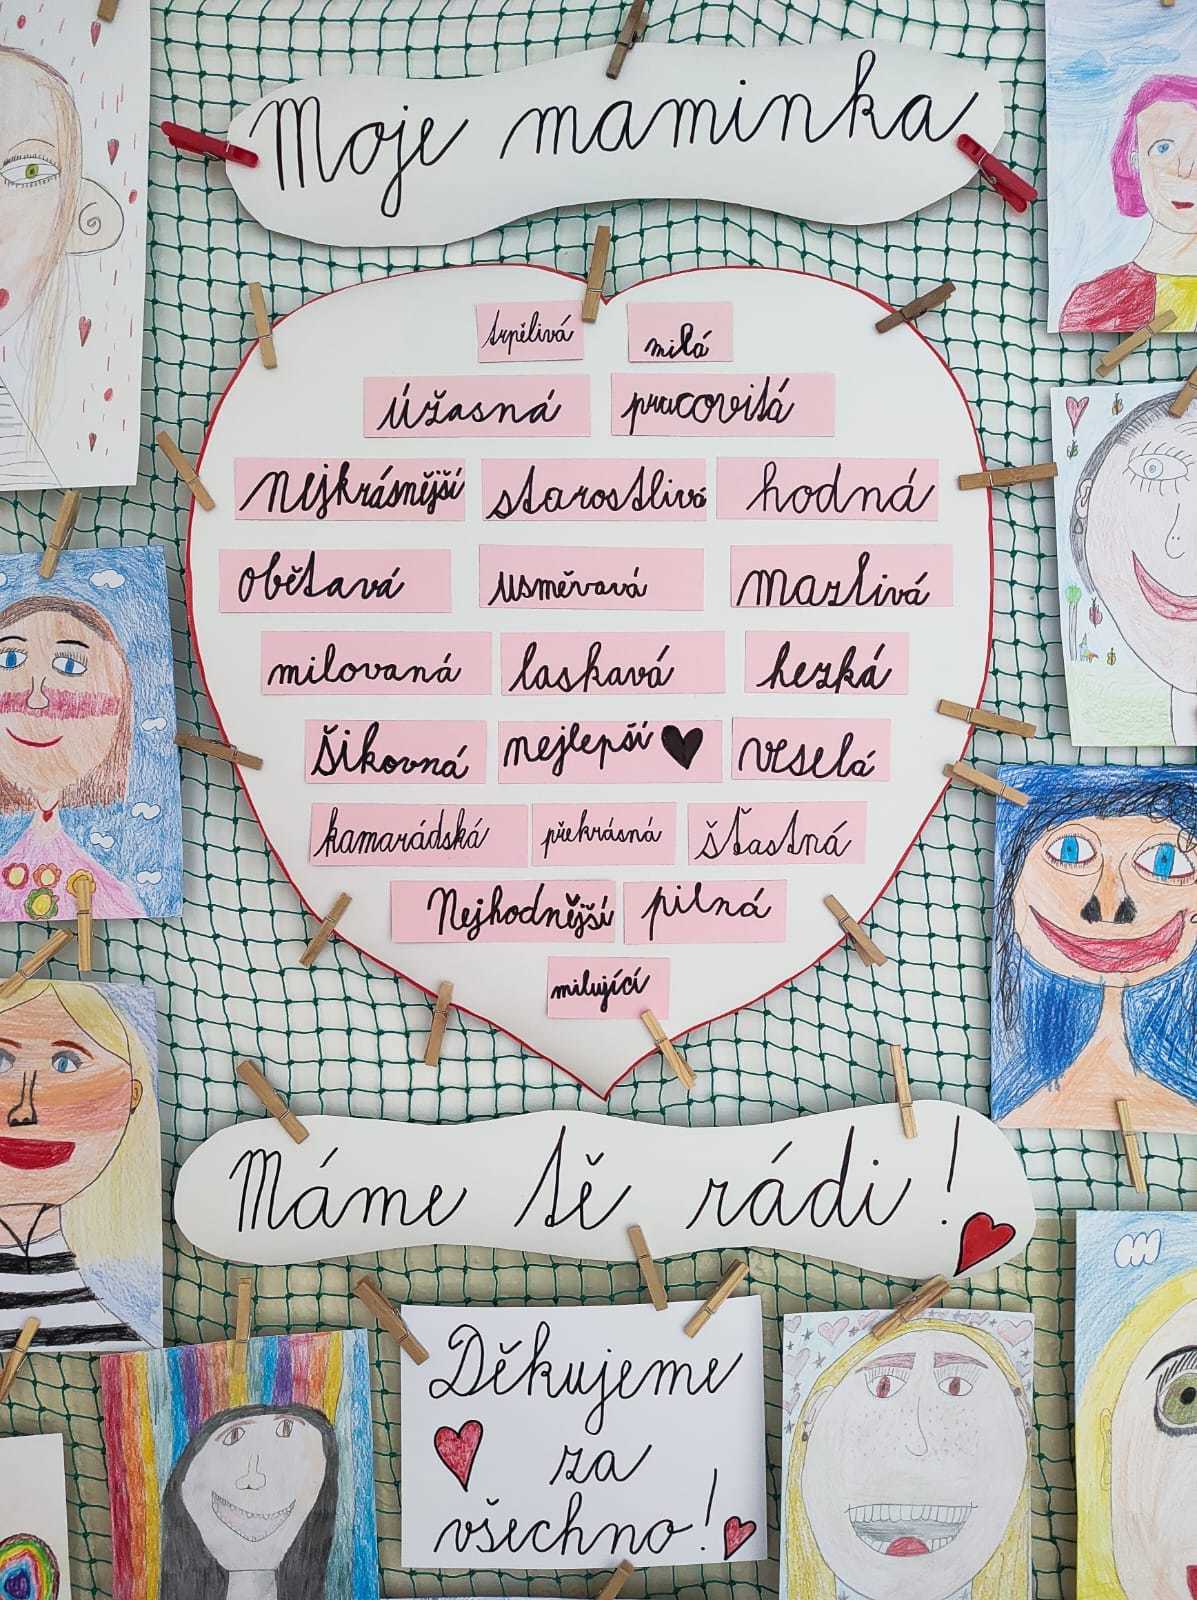 Moje maminka
trpělivá milá
úžasná pracovitá
nejkrásnější starostlivá hodná
obětavá usměvavá mazlivá
milovaná laskavá hezká
šikovná nejlepší veselá
kamarádská překrásná šťastná
Nejhodnější pilná
milující
Máme tě rádi!
Děkujeme
za
všechno!